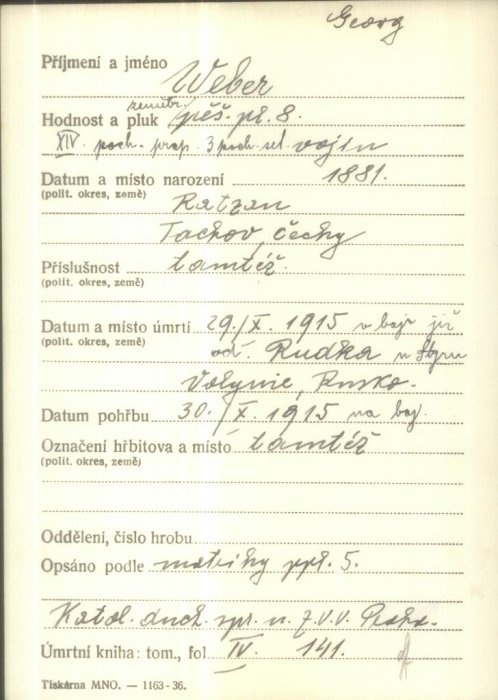 Georg
Příjmení a jméno Weber
zeměbr.
Hodnost a pluk pěš. pl. 8.
XIV. poch. prap. 3 poch. set. vojín
Datum a místo narození 1881.
(polit. okres, země) Ratzan
Tachov, Čechy
Příslušnost tamtéž.
(polit. okres, země)
Datum a místo úmrtí 29./X. 1915 v boji již
(polit. okres, země) od. Rudka u Styru
Volynie, Rusko.
Datum pohřbu 30./X. 1915 na boj.
Označení hřbitova a místo tamtéž
(polit. okres, země)
Oddělení, číslo hrobu
Opsáno podle matriky ppl. 5.
Katol. duch. spr. u Z.V.V. Praha.
Úmrtní kniha: tom., fol. IV. 141.
Tiskárna MNO. — 1163-36.